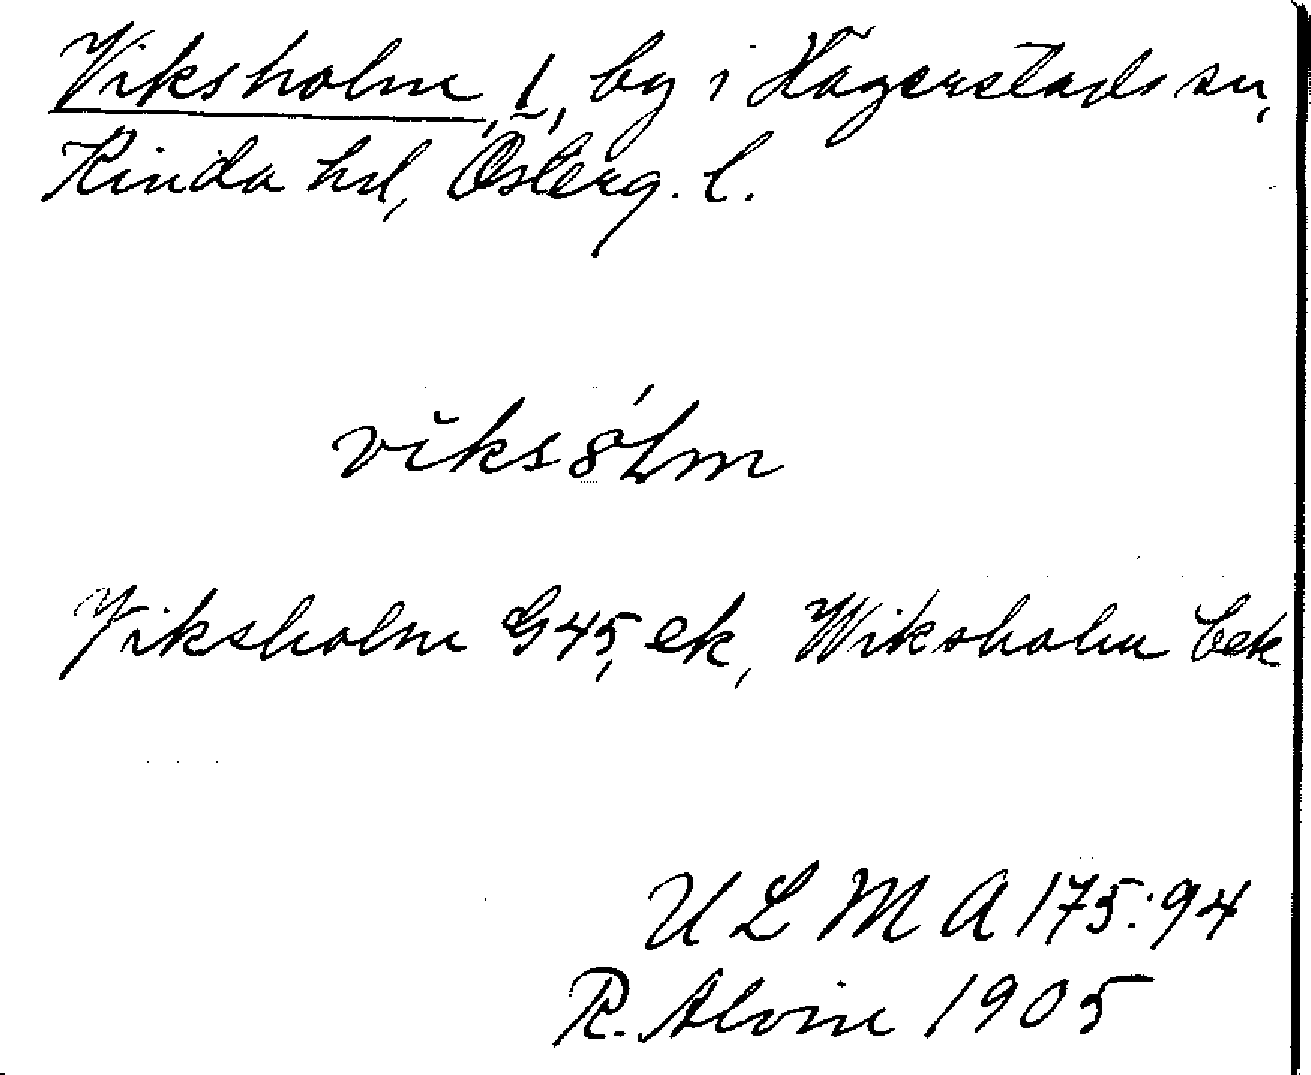 Viksholm, 1, by i Hägerstads sn,
Kinda hd, Österg. l.
Viksholm G45, ek, Wiksholm bek
ULMA 175:94
R. Alvin 1905